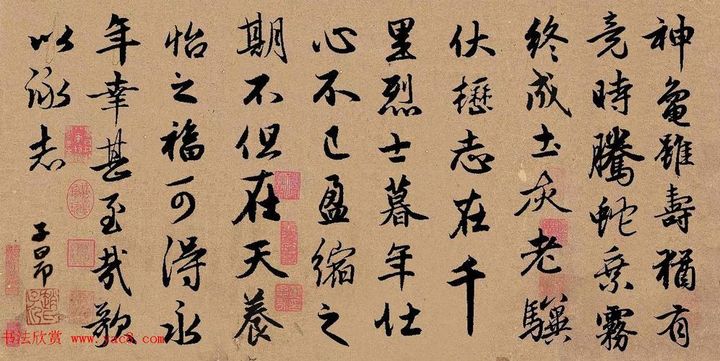 神龜雖壽猶有
竟時騰蛇乘霧
終成土灰老驥
伏櫪志在千
里烈士暮年壮
心不已盈縮之
期不但在天養
怡之福可得永
年幸甚至哉歌
以詠志
子昂
书法欣赏 www.yac8.com